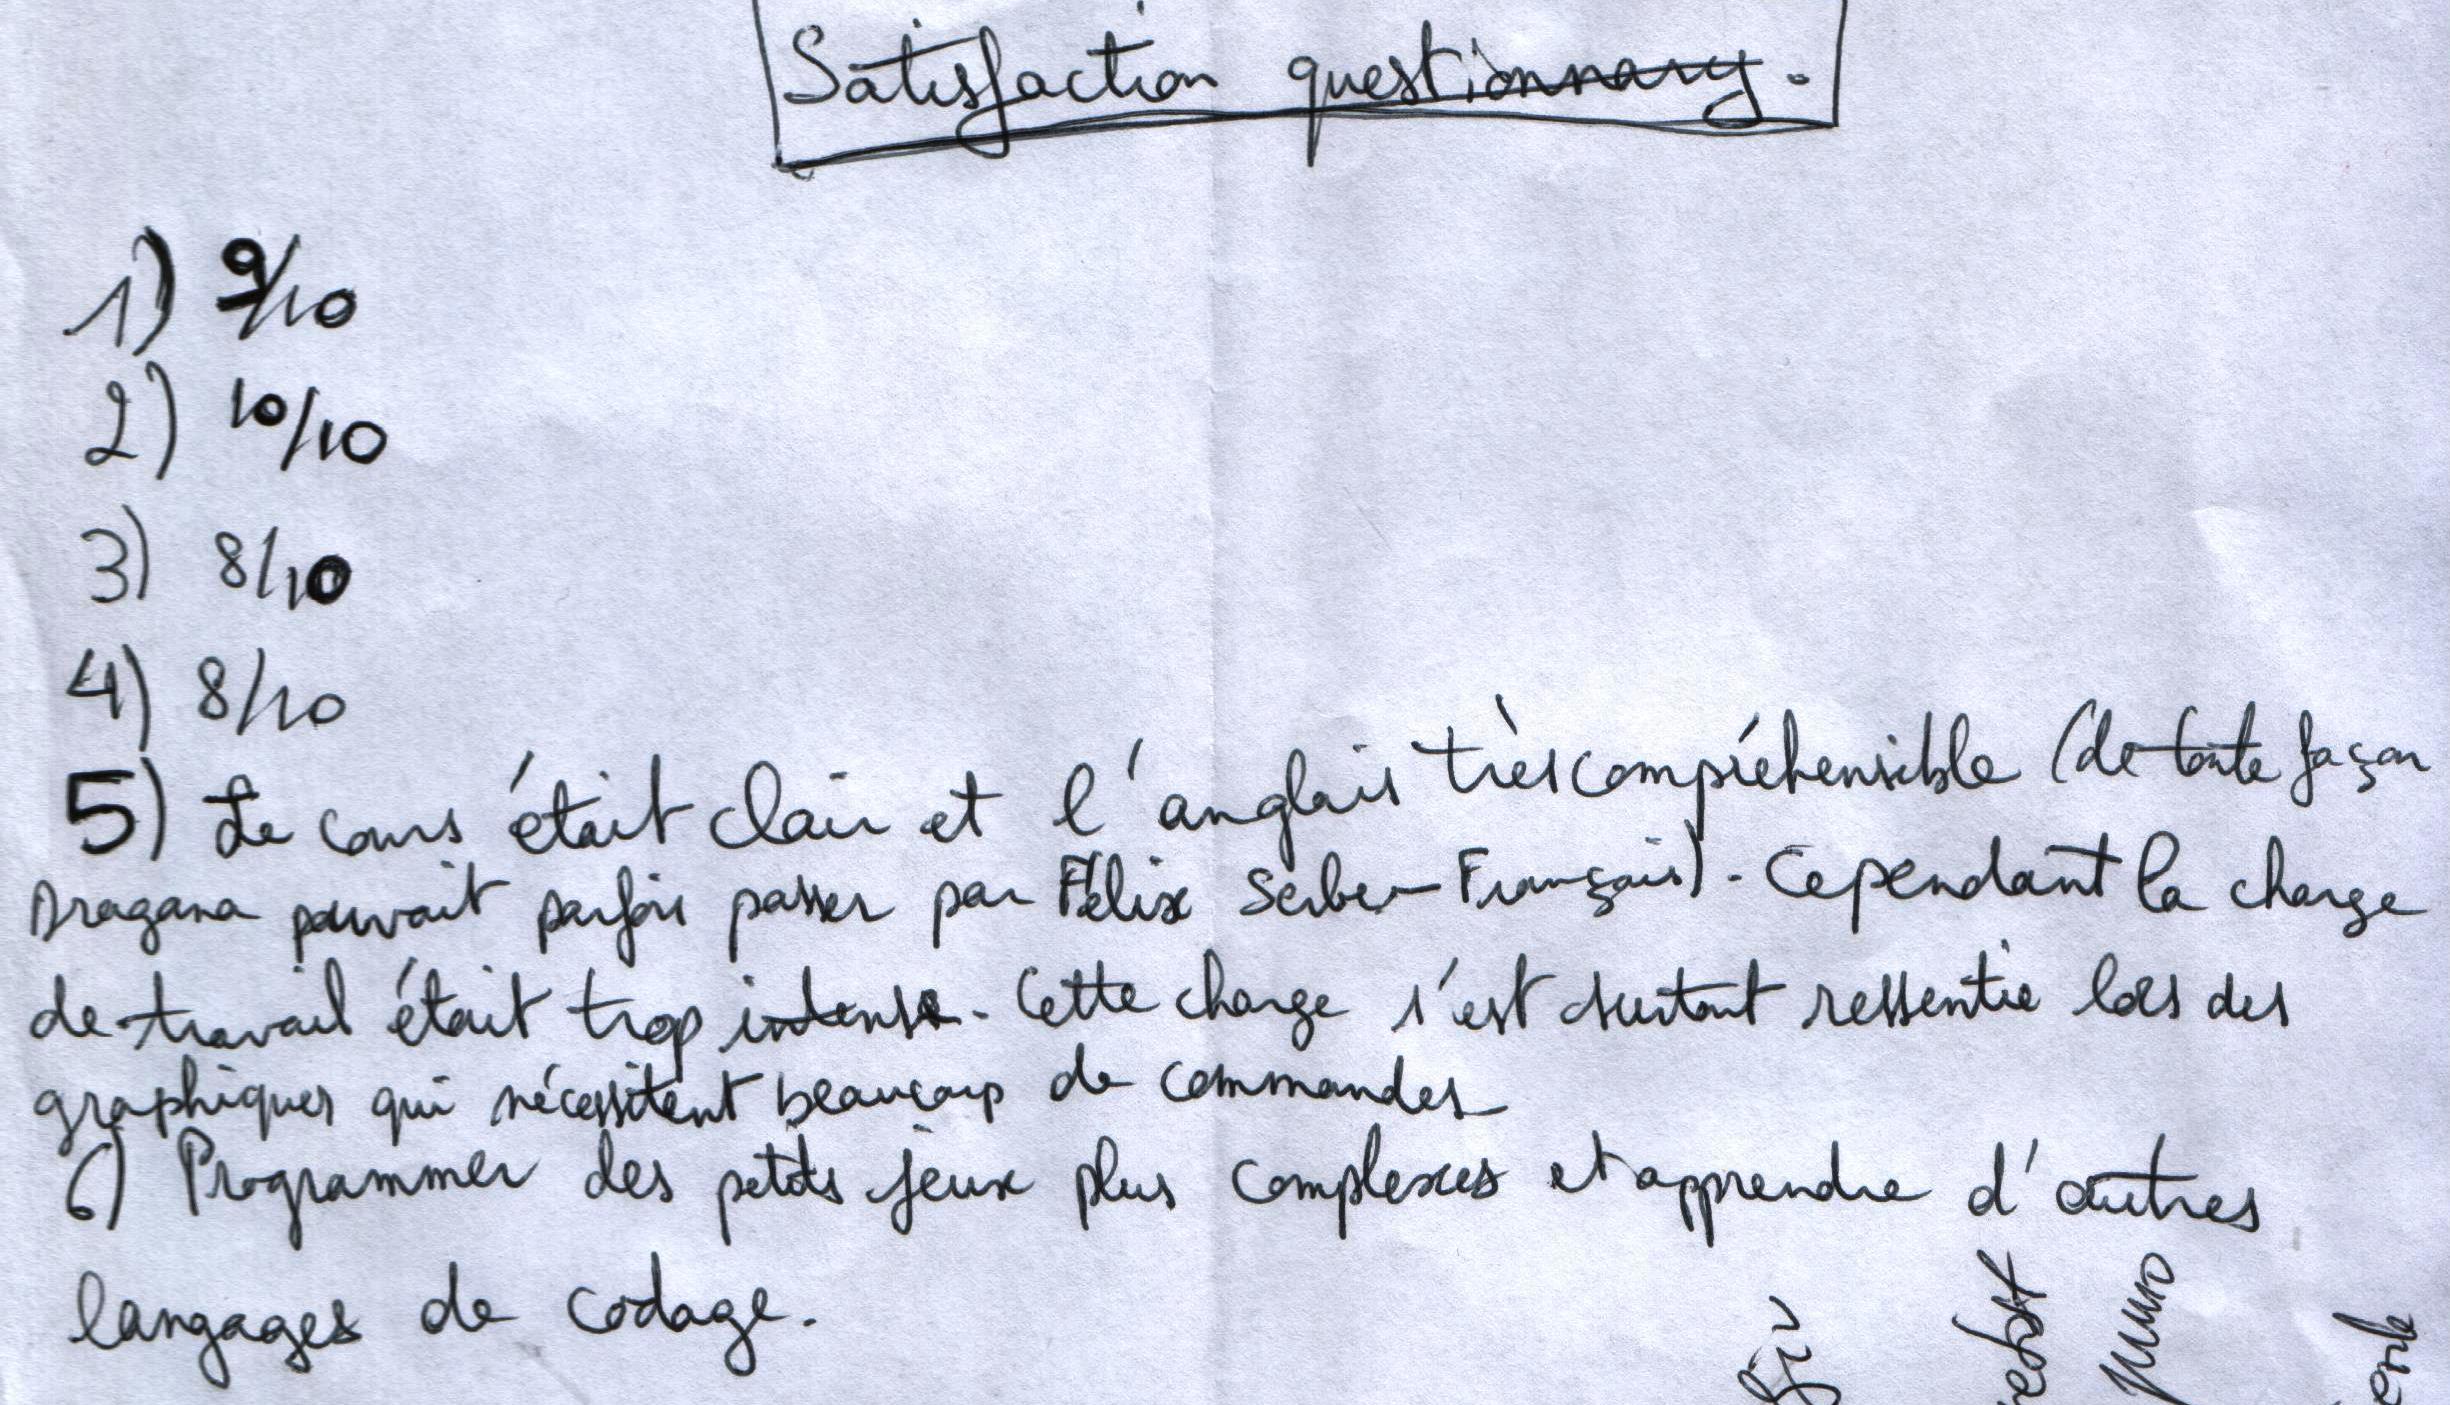 Satisfaction questionnary.
1) 9/10
2) 10/10
3) 8/10
4) 8/10
5) Le cours était clair et l'anglais très compréhensible (de toute façon
Dragana pouvait parfois passer par Félix Serbe-Français). Cependant la charge
de travail était trop intense. Cette charge s'est surtout ressentie lors des
graphiques qui nécessitent beaucoup de commandes
6) Programmer des petits jeux plus complexes et apprendre d'autres
langages de codage.